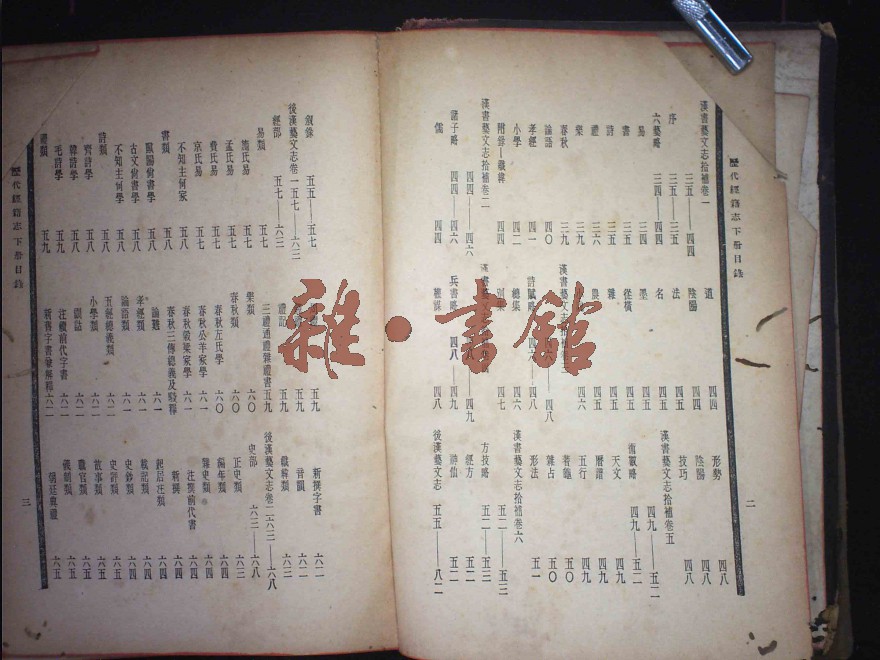 歷代經籍志下册目錄
二
漢書藝文志拾補卷一
三五——四四
序
三五——三五
六藝略
三四——四四
易
三四
書
三五
詩
三五
禮
三六
樂
三九
春秋
三九
論語
四〇
孝經
四一
小學
四二
附錄——讖緯
四四
漢書藝文志拾補卷二
四四——四六
諸子略
四四——四六
儒
四四
道
四四
陰陽
四四
法
四五
名
四五
墨
四五
從橫
四五
雜
四五
農
四五
四六
漢書藝文志拾補卷三
四六——四八
詩賦略
四六——四八
總集
四六
別集
四七
四八——四九
兵書略
四八——四九
權謀
四八
形勢
四八
陰陽
四八
技巧
四八
漢書藝文志拾補卷五
四九——五二
術數略
四九——五二
天文
四九
曆譜
四九
五行
四九
蓍龜
五〇
雜占
五〇
形法
五一
漢書藝文志拾補卷六
五二——五三
方技略
五二——五三
經方
五二
神仙
五二
後漢藝文志
五五——八二
歷代經籍志下册目錄
三
敍錄
五五——五七
後漢藝文志卷一
五七——六三
經部
五七——六三
易類
五七
施氏易
五七
孟氏易
五七
費氏易
五七
京氏易
五七
不知主何家
五七
書類
五八
歐陽尚書學
五八
古文尚書學
五八
不知主何學
五八
詩類
五八
齊詩學
五八
韓詩學
五八
毛詩學
五九
禮類
五九
五九
五九
禮記
五九
三禮通禮雜禮書
五九
樂類
六〇
春秋類
六〇
春秋左氏學
六〇
春秋公羊家學
六一
春秋穀梁家學
六一
春秋三傳總義及駁釋
論難
六一
孝經類
六一
論語類
六一
五經總義類
六二
小學類
六二
訓詁
六二
注釋前代字書
六二
新舊字書兼解釋
六二
新撰字書
六二
音韻
六二
讖緯類
六三
後漢藝文志卷二
六三——六八
史部
六三——六八
正史類
六三
編年類
六四
雜史類
六四
注釋前代書
六四
新撰
六四
起居注類
六四
載記類
六四
史鈔類
六五
史評類
六五
故事類
六五
職官類
六五
儀制類
六五
朝廷典禮
六五
雜·書館